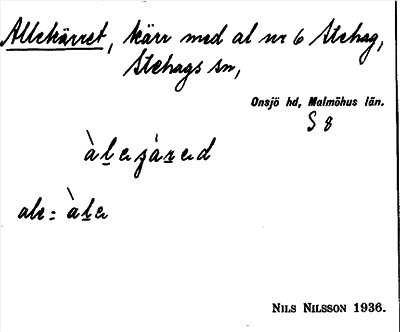 Allekärret, kärr med al nr 6 Stehag,
Stehags sn,
Onsjö hd, Malmöhus län.
S 8
ale =
NILS NILSSON 1936.